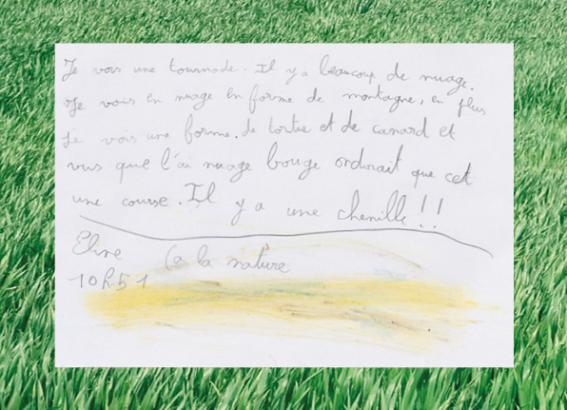 Je vois une tournade. Il y a beaucoup de nuage.
Je vois en nuage en forme de montagne, en plus
je vois une forme de tortue et de canard et
vus que l'ai nuage bouge ordirait que cet
une course. Il y a une chenille!!
Eline (a la nature
10h51